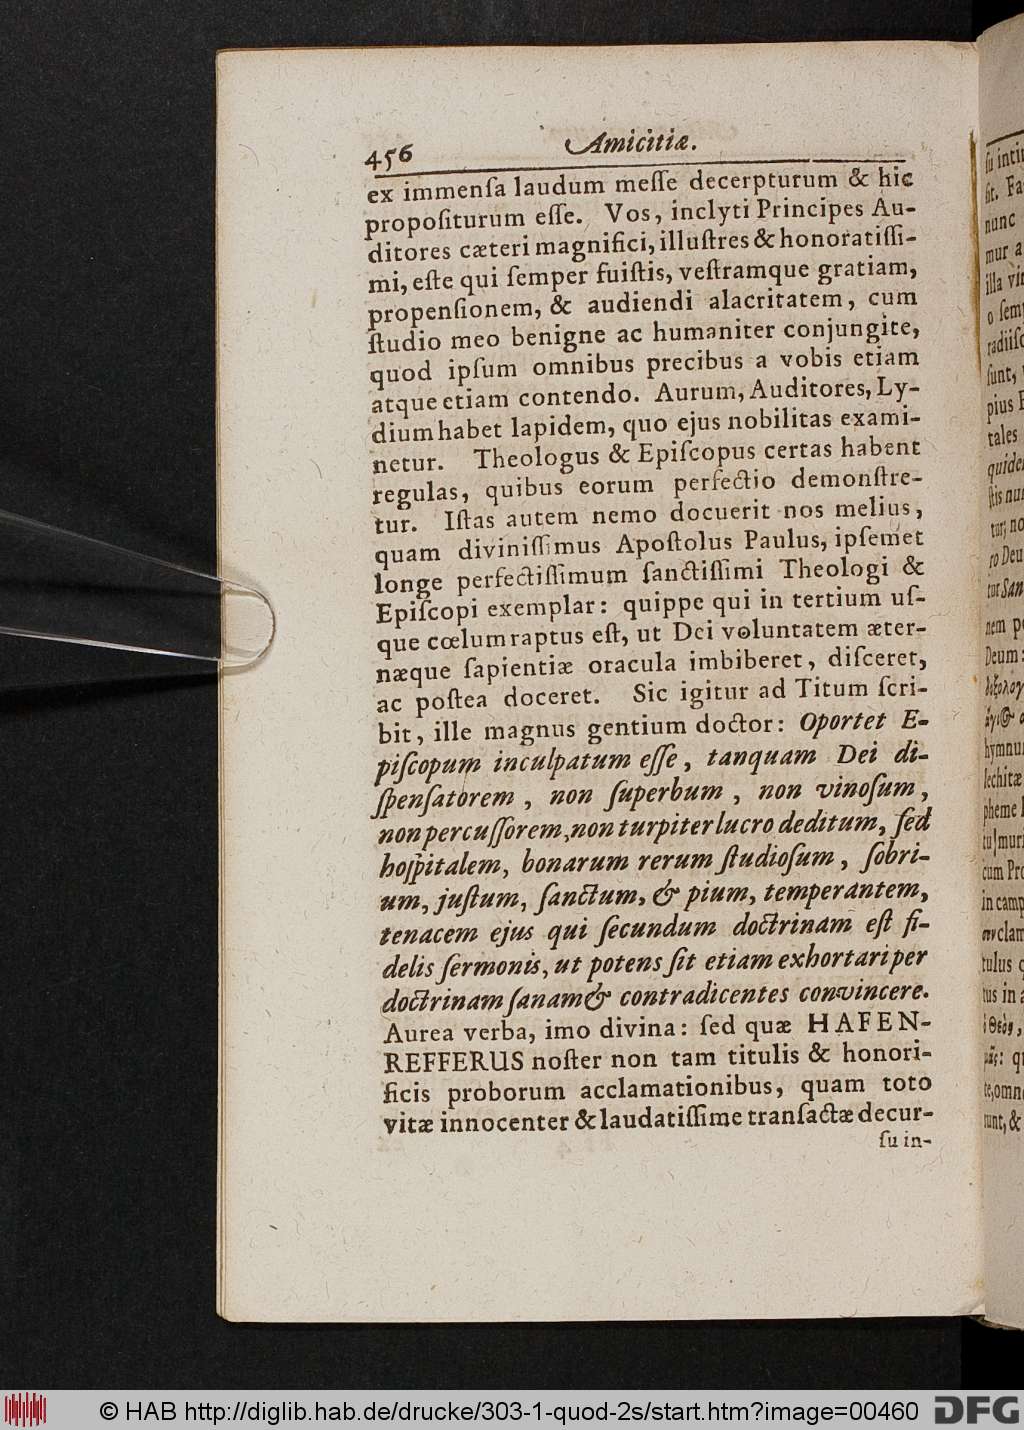 456 Amicitiæ.
ex immenſa laudum meſſe decerpturum & hic
propoſiturum eſſe. Vos, inclyti Principes Au-
ditores cæteri magnifici, illuſtres & honoratiſſi-
mi, eſte qui ſemper fuiſtis, veſtramque gratiam,
propenſionem, & audiendi alacritatem, cum
ſtudio meo benigne ac humaniter conjungite,
quod ipſum omnibus precibus a vobis etiam
atque etiam contendo. Aurum, Auditores, Ly-
dium habet lapidem, quo ejus nobilitas exami-
netur. Theologus & Epiſcopus certas habent
regulas, quibus eorum perfectio demonſtre-
tur. Iſtas autem nemo docuerit nos melius,
quam diviniſſimus Apoſtolus Paulus, ipſemet
longe perfectiſſimum ſanctiſſimi Theologi &
Epiſcopi exemplar: quippe qui in tertium uſ-
que cœlum raptus eſt, ut Dei voluntatem æter-
næque ſapientiæ oracula imbiberet, diſceret,
ac poſtea doceret. Sic igitur ad Titum ſcri-
bit, ille magnus gentium doctor: Oportet E-
piſcopum inculpatum eſſe, tanquam Dei di-
ſpenſatorem, non ſuperbum, non vinoſum,
non percuſſorem, non turpiter lucro deditum, ſed
hoſpitalem, bonarum rerum ſtudioſum, ſobri-
um, juſtum, ſanctum, & pium, temperantem,
tenacem ejus qui ſecundum doctrinam eſt fi-
delis ſermonis, ut potens ſit etiam exhortari per
doctrinam ſanam & contradicentes convincere.
Aurea verba, imo divina: ſed quæ HAFEN-
REFFERUS noſter non tam titulis & honori-
ficis proborum acclamationibus, quam toto
vitæ innocenter & laudatiſſime tranſactæ decur-
ſu in-
© HAB http://diglib.hab.de/drucke/303-1-quod-2s/start.htm?image=00460 DFG